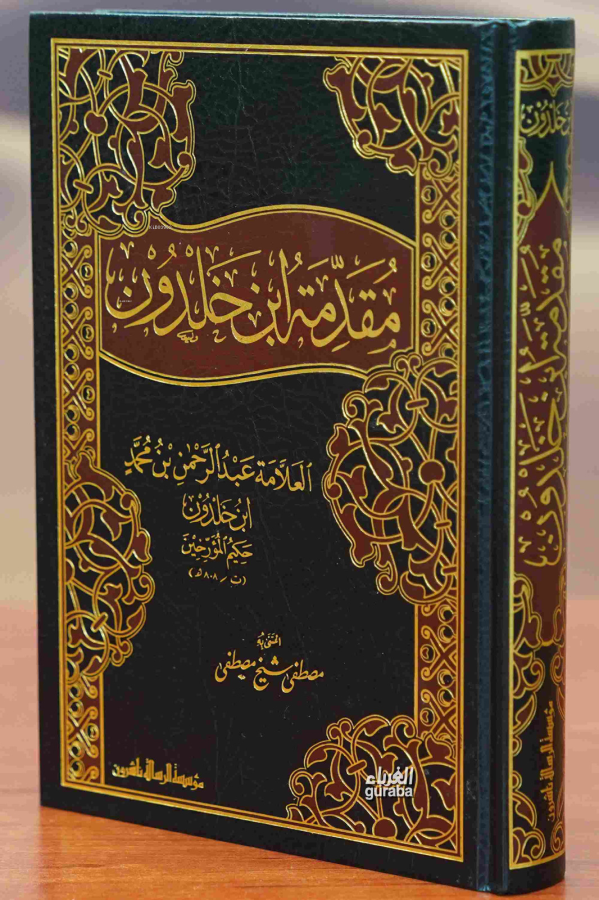 مُقَدِّمَةُ ابْنِ خَلْدُوْن
العَلَّامَة عَبْدُ الرَّحْمٰنِ بْنُ مُحَمَّد
ابْنُ خَلْدُوْن
حَكِيمُ المُؤَرِّخِيْن
(ت/٨٠٨هـ)
اعْتَنَى بِهِ
مصطفى شيخ مصطفى
مؤسسة الرسالة ناشرون
الغرباء
guraba
خَلْدُوْن
مقدمة ابن خلدون
مؤسسة الرسالة ناشرون